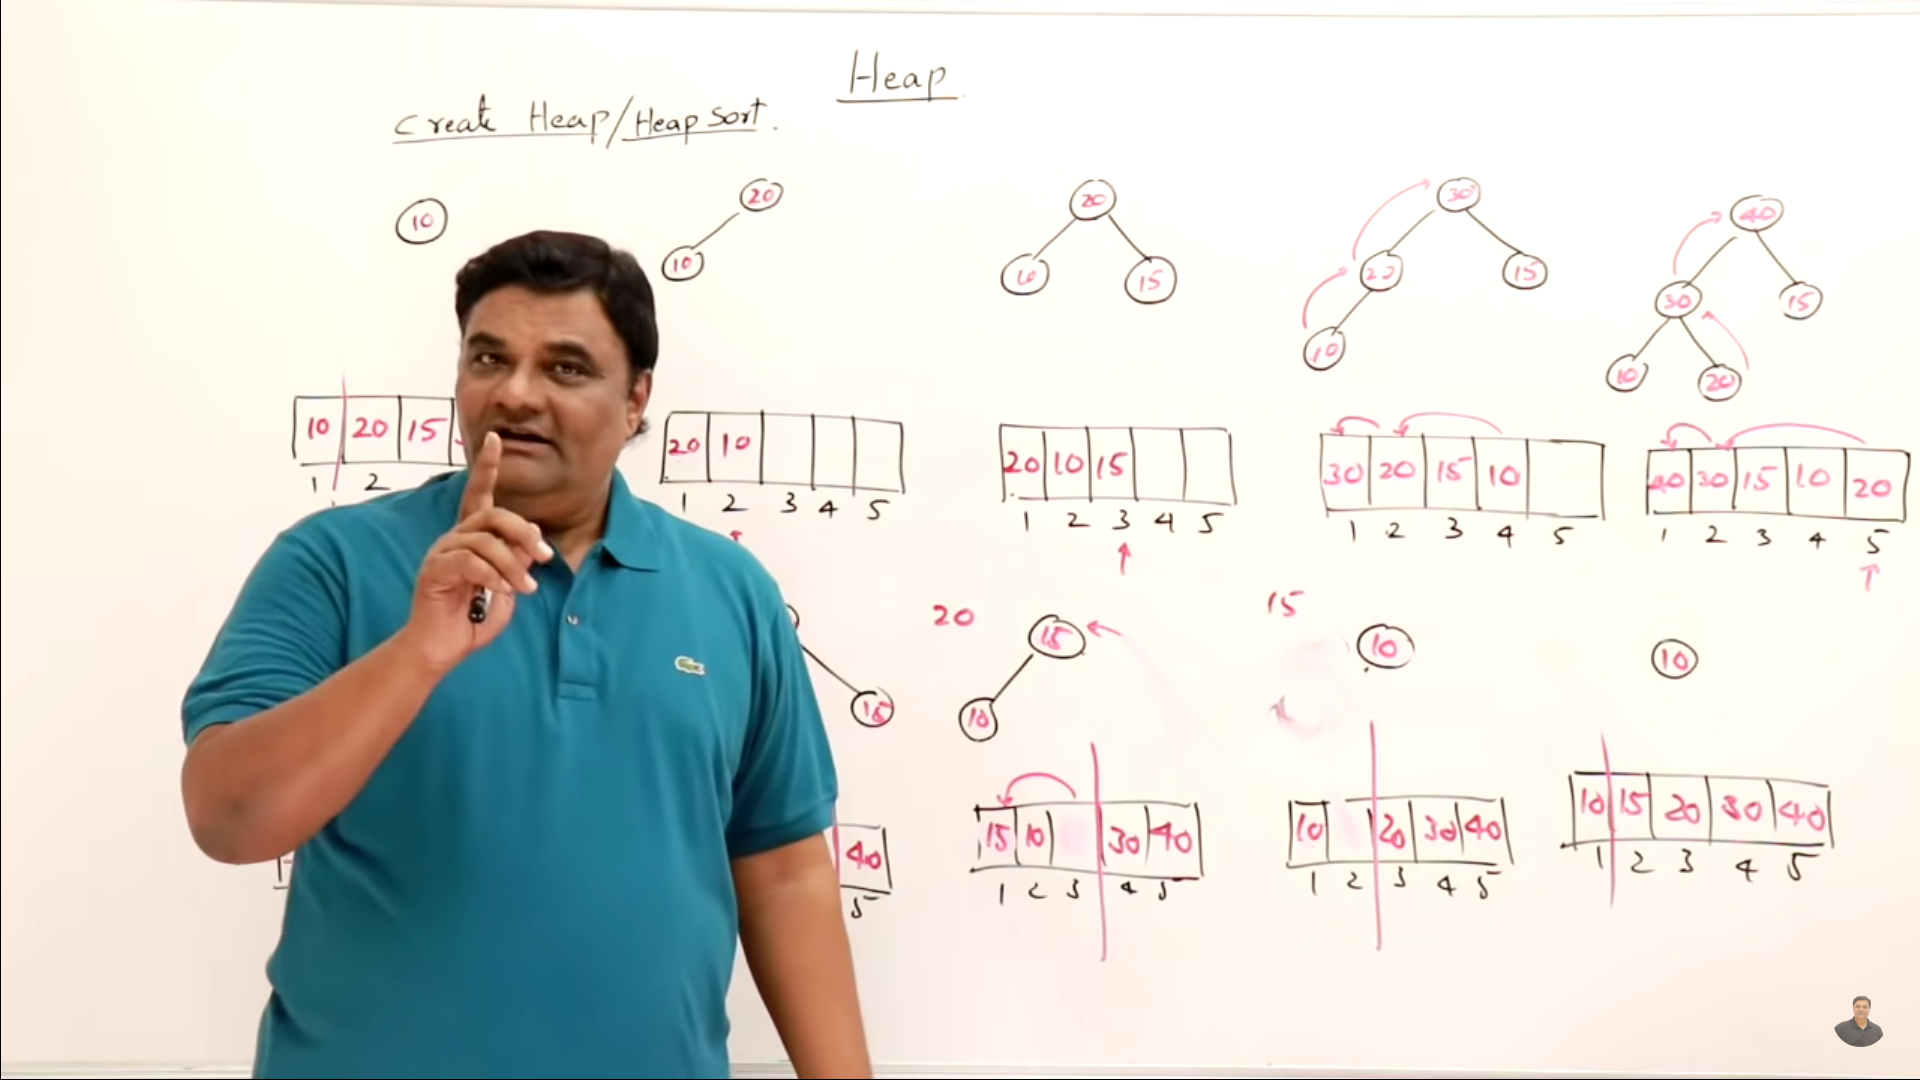 Heap
Create Heap/Heap Sort.
10
20
10
20
10 15
30
20 15
10
40
30 15
10 20
10 20 15
1 2
20 10
1 2 3 4 5
20 10 15
1 2 3 4 5
30 20 15 10
1 2 3 4 5
40 30 15 10 20
1 2 3 4 5
15
40
5
20
15
10
15 10 30 40
1 2 3 4 5
15
10
10 20 30 40
1 2 3 4 5
10
10 15 20 30 40
1 2 3 4 5